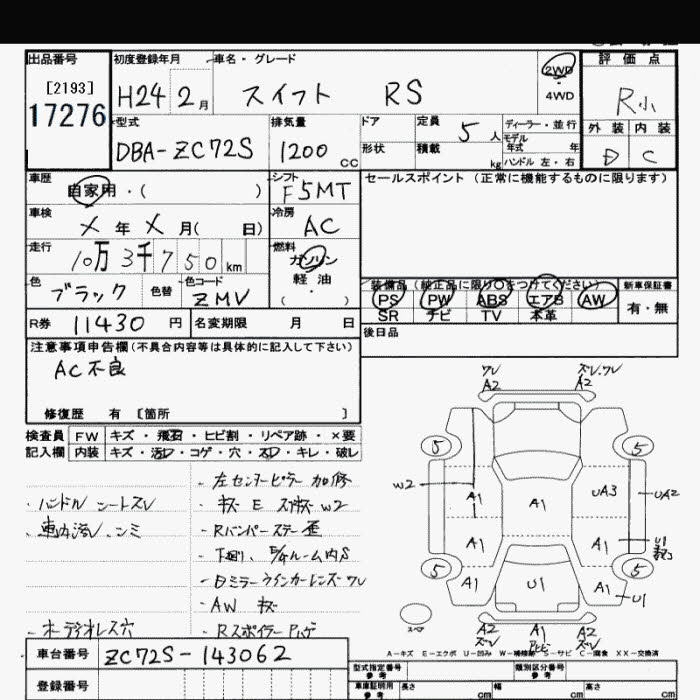 出品番号 初度登録年月 車名・グレード 2WD 評価点
[2193] H24 2月 スイフト RS 4WD R小
17276 型式 排気量 ドア 定員 5人 ディーラー・並行 外装 内装
DBA-ZC72S 1200cc 形状 積載 kg モデル年式 年 D C
ハンドル 左・右
車歴 シフト セールスポイント (正常に機能するものに限ります)
自家用・( ) F5MT
車検 冷房
X年X月( 日) AC
走行 燃料
10万3千750km ガソリン
色 色替 色コード 軽油 装備品 (純正品に限り○をつけてください) 新車保証書
ブラック ZMV ( ) PS PW ABS エアB AW 有・無
R券 11430円 名変期限 月 日 SR ナビ TV 本革
後日品
注意事項申告欄(不具合内容等は具体的に記入して下さい)
AC不良
修復歴 有 [箇所 ]
検査員 FW キズ・飛石・ヒビ割・リペア跡・×要
記入欄 内装 キズ・汚レ・コゲ・穴・スレ・キレ・破レ
・左センターピラー加修
・ハンドル シートスレ ・キズ E スリキズ W2
・車内汚レ、シミ ・Rバンパーステー歪
・下廻り、E/gルーム内S
・Dミラーウインカーレンズワレ
・AW キズ
・オーディオレス穴 ・Rスポイラー
ワレ A2 ズレ、ワレ A2
5 5
W2 A1 A1 UA3 UA2
A1 A1 U1
5 5
A1 U1 A1 U1
スペア A2 ズレ A1 A2 ズレ
A-キズ E-エクボ U-凹み W-補修跡 S-サビ C-腐食 XX-交換済
車台番号 ZC72S-143062
登録番号
型式指定番号 参考 類別区分番号 参考
車庫証明用 参考 長さ cm 幅 cm 高さ cm